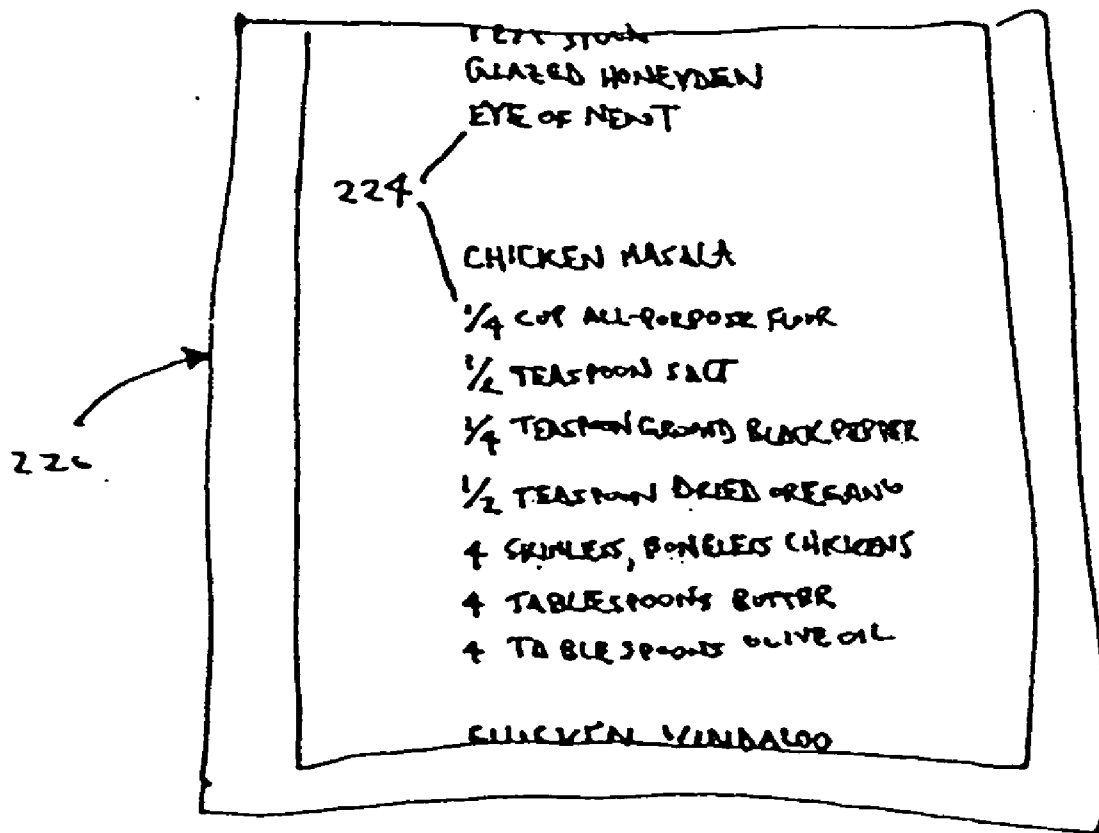 GLAZED HONEYDEW
EYE OF NEWT
224
CHICKEN MASALA
1/4 CUP ALL-PURPOSE FLOUR
1/2 TEASPOON SALT
1/4 TEASPOON GROUND BLACK PEPPER
1/2 TEASPOON DRIED OREGANO
4 SKINLESS, BONELESS CHICKENS
4 TABLESPOONS BUTTER
4 TABLESPOONS OLIVE OIL
CHICKEN VINDALOO